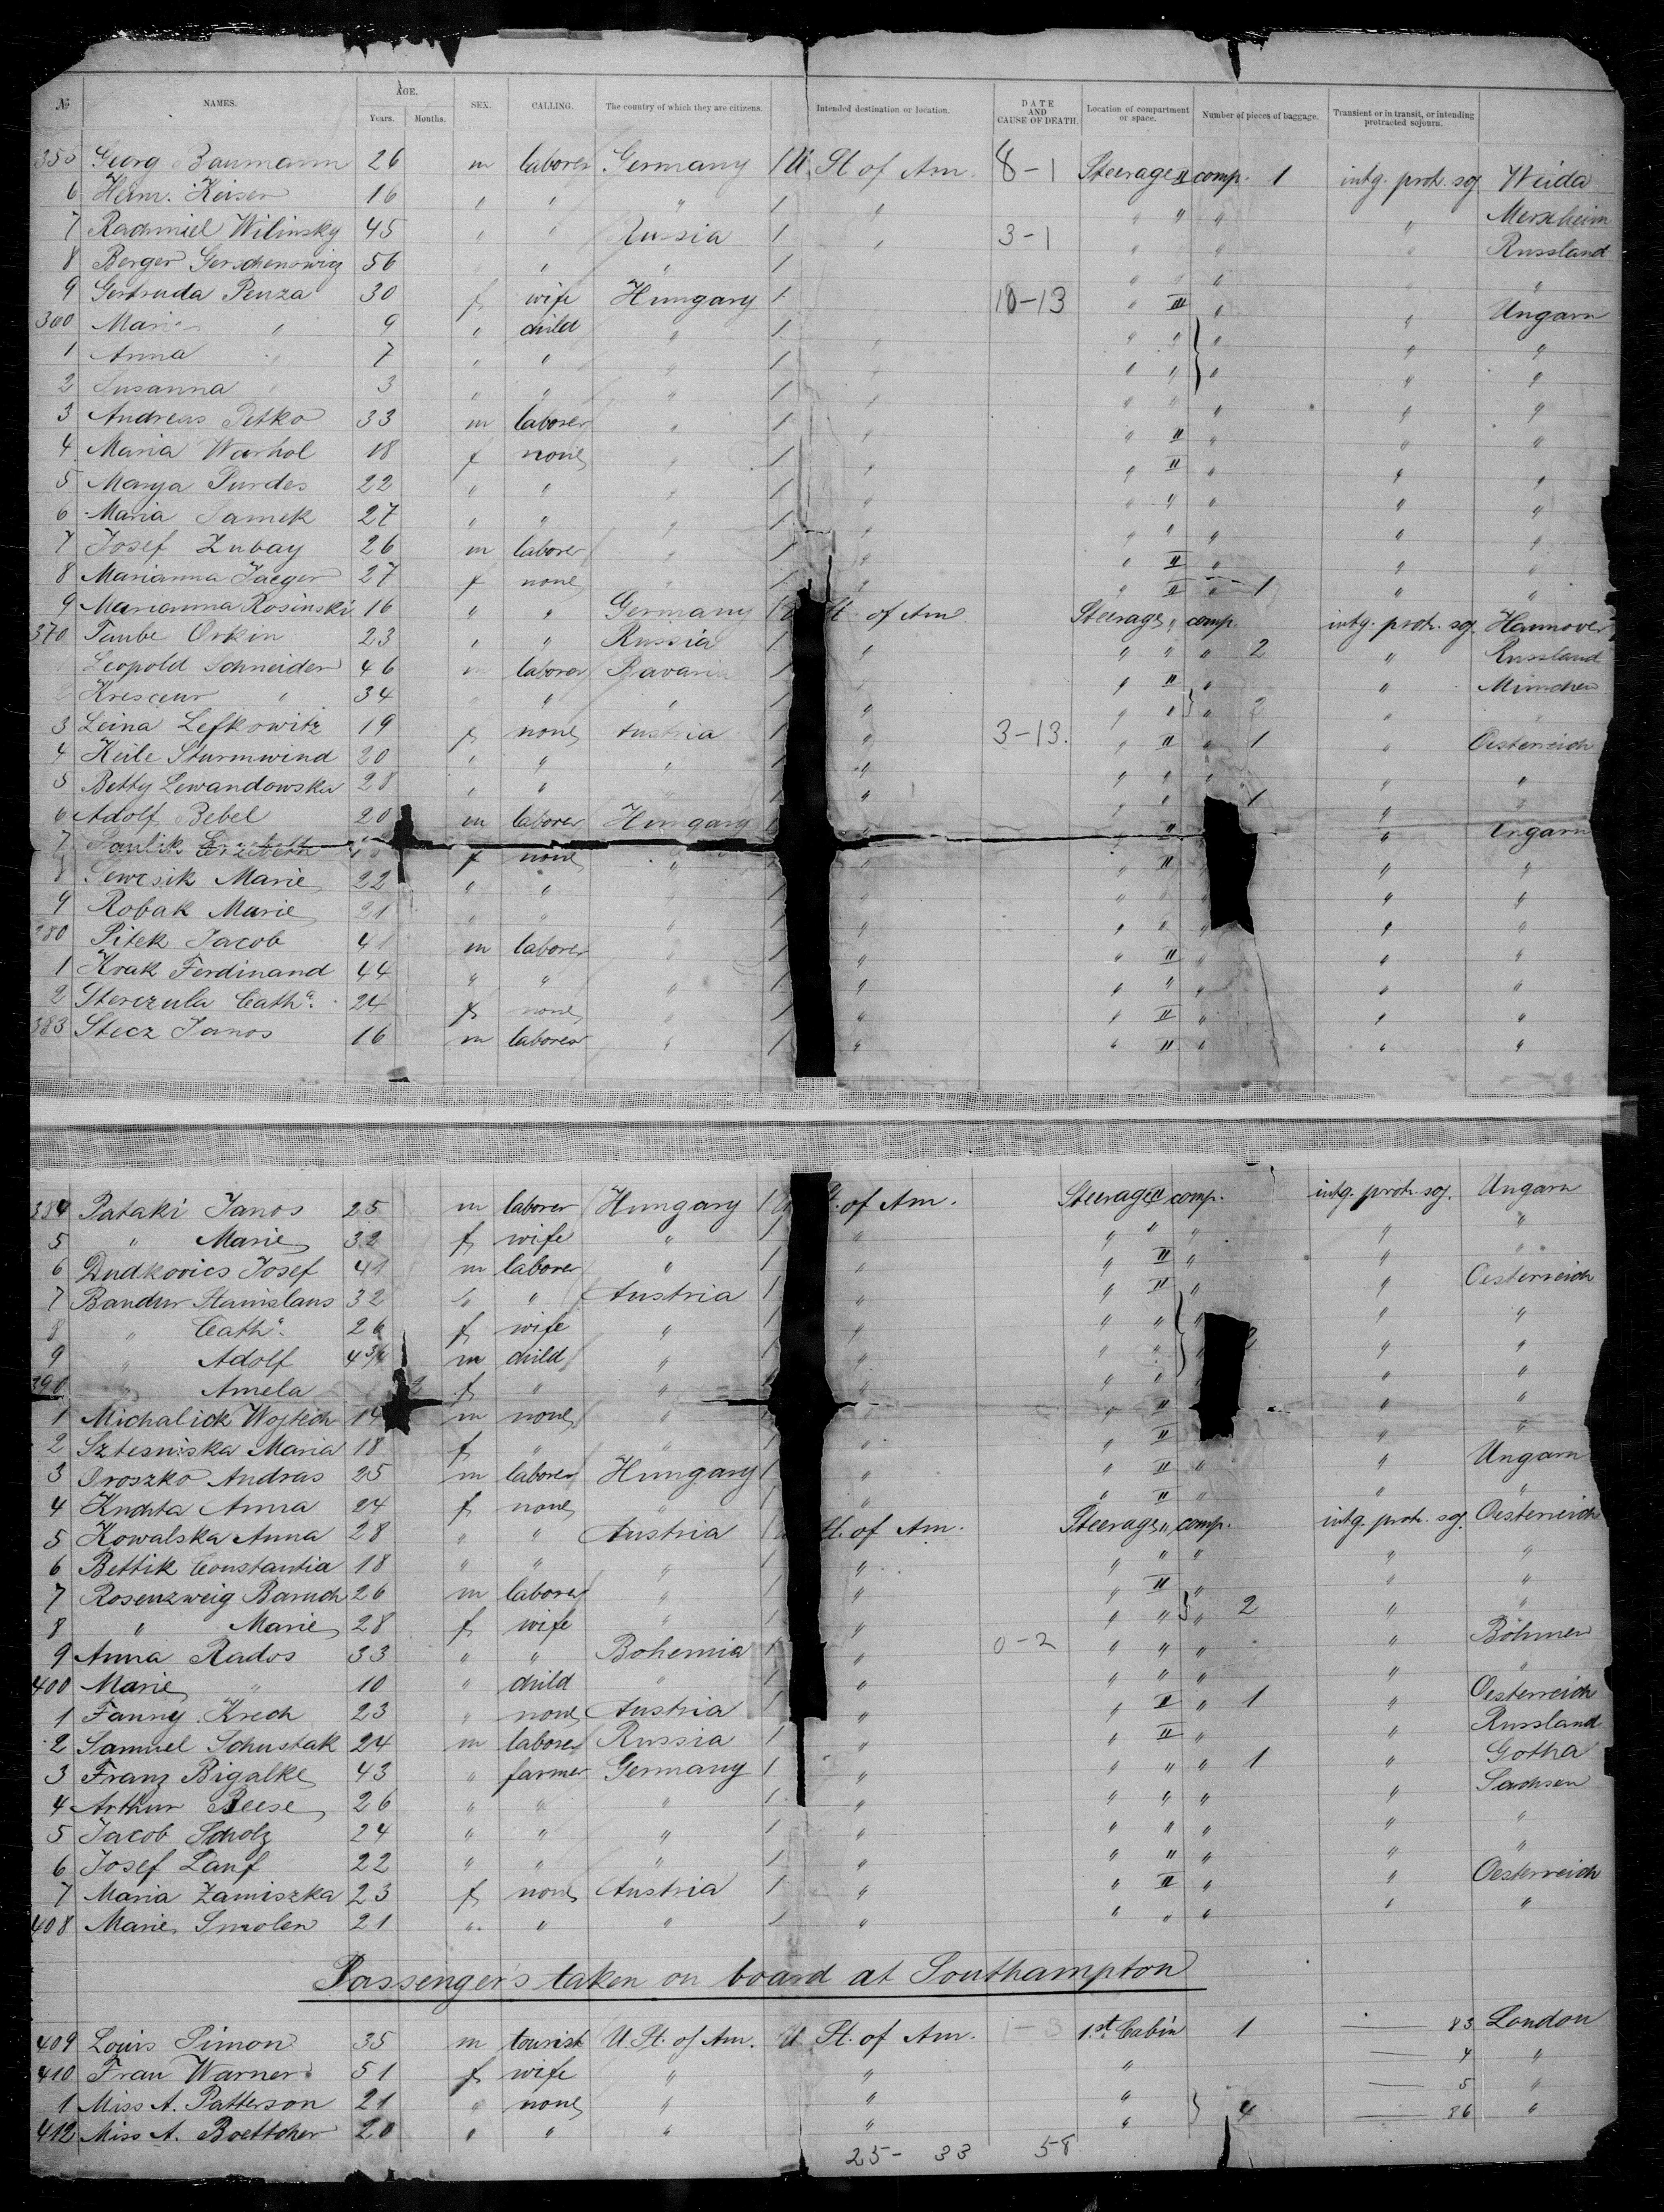 № NAMES. AGE. Years. Months. SEX. CALLING. The country of which they are citizens. Intended destination or location. DATE AND CAUSE OF DEATH. Location of compartment or space. Number of pieces of baggage. Transient or in transit, or intending protracted sojourn.
355 Georg Baumann 26 m laborer Germany 1 U. St of Am. 8-1 Steerage II comp. 1 intg. protr. soj Weida
6 Heinr. Keiser 16 " " " 1 " " " " " Merxheim
7 Rachmiel Wilinsky 45 " " Russia 1 " 3-1 " " " " Russland
8 Berger Gerschenowig 56 " " 1 " " " "
9 Gertruda Penza 30 f wife Hungary 1 10-13 " III " " Ungarn
360 Maria " 9 " child " 1 " " " " " "
1 Anna " 7 " " " 1 " " " " " "
2 Susanna " 3 " " " 1 " " " " " "
3 Andreas Petko 33 m laborer " 1 " " II " " "
4 Maria Warhol 18 f none " 1 " " II " " "
5 Marya Purdes 22 " " " 1 " " " " " "
6 Maria Samek 27 " " " 1 " " " " " "
7 Josef Zubay 26 m laborer " 1 " " II " " "
8 Marianna Jaeger 27 f none " 1 " " II " 1 " "
9 Marianna Rosinski 16 " " Germany 1 St of Am Steerage " comp. intg. protr. soj. Hannover
370 Taube Orkin 23 " " Russia 1 " " " " 2 " Russland
1 Leopold Schneider 46 m laborer Bavaria 1 " " II " " München
2 " 34 " " " 1 " " " " 2 " "
3 Leina Lefkowitz 19 f none Austria 1 " 3-13. " II " 1 " Oesterreich
4 Keile Sturmwind 20 " " " 1 " " " " " "
5 Betty Lewandowska 28 " " " 1 " " " 1 " "
6 Adolf Bebel 20 m laborer Hungary 1 " " II " Ungarn
7 Paulik Erzibeth f none " " " II " "
8 Marie 22 " " " " " " "
9 Robak Marie 21 " " " 1 " " " " " "
380 Pitek Jacob 41 m laborer " 1 " " II " " "
1 Krak Ferdinand 44 " " " 1 " " " " " "
2 Sterczula Catha. 24 f none " 1 " " II " " "
383 Stecz Janos 16 m laborer " 1 " " II " " "
384 Pataki Janos 25 m laborer Hungary 1 St. of Am. Steerage II comp. intg. protr. soj. Ungarn
5 " Marie 32 f wife " 1 " " " " " "
6 Dudkovics Josef 41 m laborer " 1 " " II " " "
7 Bandur Stanislaus 32 " " Austria 1 " " II " " Oesterreich
8 " Catha. 26 f wife " 1 " " " " "
9 " Adolf 4 3/4 m child " 1 " " " 2 " "
390 " Amela f " " 1 " " " " "
1 Michalick Wojtech 14 m none " 1 " " II " "
2 Sztesniska Maria 18 f " " 1 " " II " "
3 Oroszko Andras 25 m laborer Hungary 1 " " II " " Ungarn
4 Knchta Anna 24 f none " 1 " " II " " "
5 Kowalska Anna 28 " " Austria 1 St. of Am. Steerage " comp. intg. protr. soj. Oesterreich
6 Bettik Constantia 18 " " " 1 " " " " " "
7 Rosenzweig Baruch 26 m laborer " 1 " " II " " "
8 " Marie 28 f wife " 1 " " " " 2 " "
9 Anna Rados 33 " " Bohemia 1 " 0-2 " " " " Böhmen
400 Marie " 10 " child " 1 " " " " " "
1 Fanny Krech 23 " none Austria 1 " " II " 1 " Oesterreich
2 Samuel Schustak 24 m laborer Russia 1 " " II " " Russland
3 Franz Bigalke 43 " farmer Germany 1 " " " " 1 " Gotha
4 Arthur Reese 26 " " " 1 " " " " " Sachsen
5 Jacob Scholz 24 " " " 1 " " " " " "
6 Josef Lauf 22 " " " 1 " " " " " "
7 Maria Zamiszka 23 f none Austria 1 " " II " " Oesterreich
408 Marie Smolen 21 " " " 1 " " " " " "
Passengers taken on board at Southampton
409 Louis Simon 35 m tourist U. St. of Am. U. St. of Am. 1-3 1st. Cabin 1 83 London
410 Frau Warner 51 f wife " " " 4 "
1 Miss A. Patterson 21 " none " " " 5 "
412 Miss A. Boettcher 20 " " " " " 4 86 "
25- 33 58